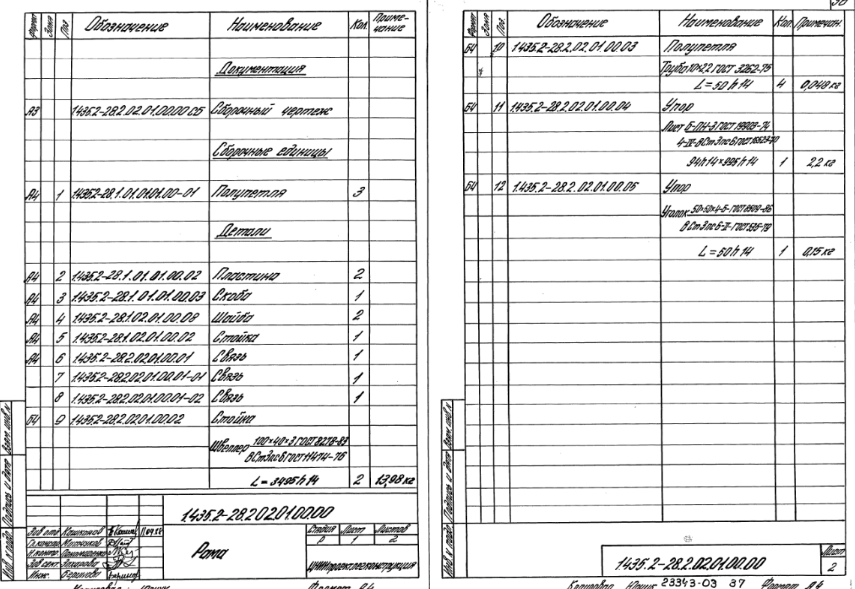 Формат Зона Поз. Обозначение Наименование Кол. Приме-
чание
Документация
А3 1.435.2-28.2.02.01.00.00 СБ Сборочный чертеж
Сборочные единицы
А4 1 1.435.2-28.1.01.01.01.00-01 Полупетля 3
Детали
А4 2 1.435.2-28.1.01.01.00.02 Пластина 2
А4 3 1.435.2-28.1.01.01.00.03 Скоба 1
А4 4 1.435.2-28.1.02.01.00.08 Шайба 2
А4 5 1.435.2-28.1.02.01.00.02 Стойка 1
А4 6 1.435.2-28.2.02.01.00.01 Связь 1
7 1.435.2-28.2.02.01.00.01-01 Связь 1
8 1.435.2-28.2.02.01.00.01-02 Связь 1
БЧ 9 1.435.2-28.2.02.01.00.02 Стойка
Швеллер 100×40×3 ГОСТ 8278-83
ВСт3пс6 ГОСТ 11474-76
L = 3495 h 14 2 13,98 кг
1.435.2-28.2.02.01.00.00
Рама
Стадия Лист Листов
Р 1 2
ЦНИИпроектлегконструкция
Формат А4
Формат Зона Поз. Обозначение Наименование Кол. Примечан.
БЧ 10 1.435.2-28.2.02.01.00.03 Полупетля
Труба 10×2,2 ГОСТ 3262-75
L = 50 h 14 4 0,048 кг
БЧ 11 1.435.2-28.2.02.01.00.04 Упор
Лист Б-ПН-3 ГОСТ 19903-74
94h14×995h14 1 2,2 кг
БЧ 12 1.435.2-28.2.02.01.00.05 Упор
Уголок 50×50×4-Б ГОСТ 8509-86
L = 50 h 14 1 0,15 кг
Инв. № подл. Подпись и дата Взам. инв. №
1.435.2-28.2.02.01.00.00
Лист
2
Копировал 23343-03 37 Формат А4